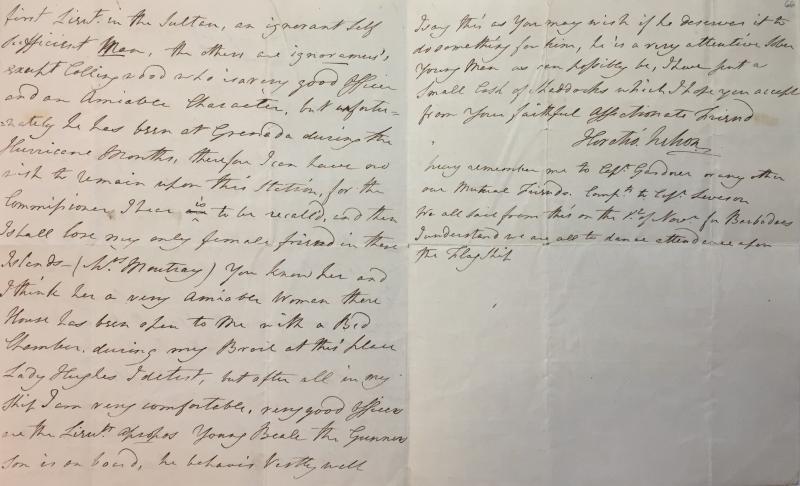 first Lieut. in the Sultan, an ignorant Self
Sufficient Man, the others are ignoramus's
except Collingwood who is a very good Officer
and an Amiable Character, but unfortu=
=nately he has been at Grenada during the
Hurricane Months, therefore I can have no
wish to remain upon this Station, for the
Commissioner I hear is to be recalled, and then
I shall lose my only female friend in these
Islands - (Mrs. Moutray) You know her and
I think her a very Amiable Woman there
House has been open to Me with a Bed
Chamber during my Broil at this place
Lady Hughes I detest, but after all in my
Ship I am very comfortable, very good Officers
are the Lieuts. apropos Young Beale the Gunners
son is on board, he behaves Vastly well
66
I say this as You may wish if he deserves it to
do something for him, he is a very attentive Sober
Young Man as can possibly be, I have put a
Small Cask of Shaddocks which I hope you accept
from Your faithful Affectionate Friend
Horatio Nelson
pray remember me to Capt. Gardner or any other
our Mutual Friends. Compts. to Capt. Leveson
We all sail from this on the 1st of Novr for Barbadoes
I understand we are all to dance attendance upon
the Flag Ship